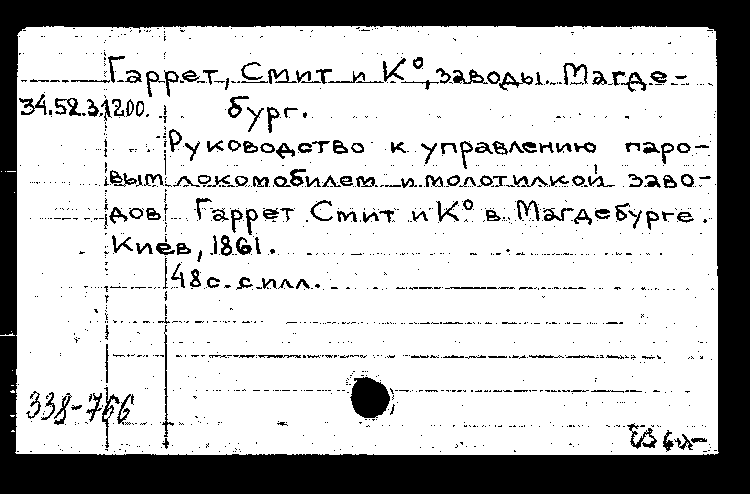 Гаррет, Смит и К°, заводы. Магде-
34.52.3.1200. бург.
Руководство к управлению паро-
вым локомобилем и молотилкой заво-
дов Гаррет Смит и К° в Магдебурге.
Киев, 1861.
48 с. с илл.
338-766